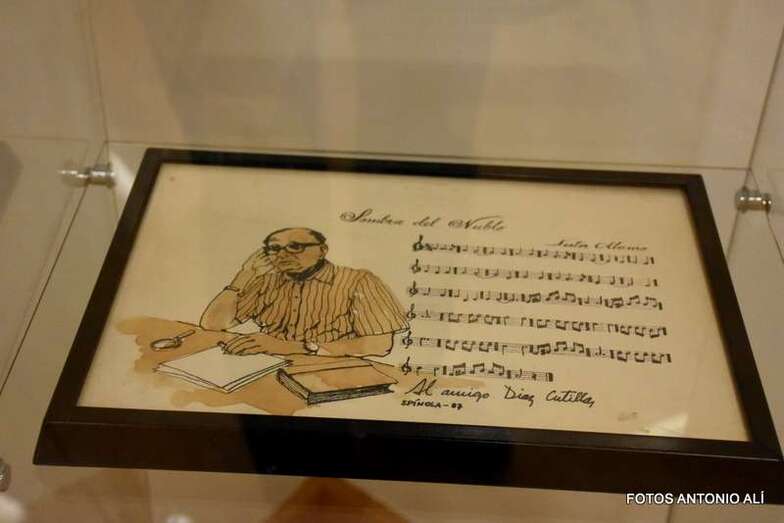 Sombra del Nublo
Nestor Alamo
Al amigo Diaz Cutillas
SPÍNOLA-87
FOTOS ANTONIO ALÍ